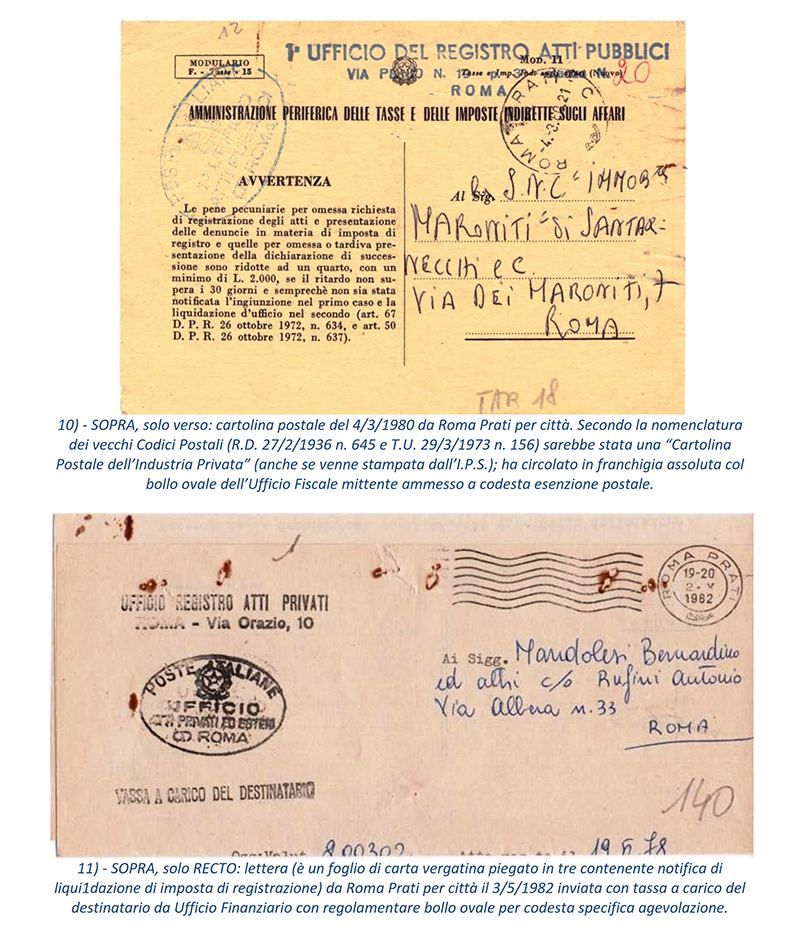 12
MODULARIO
F. - Tasse - 15
1º UFFICIO DEL REGISTRO ATTI PUBBLICI
Mod. 11
VIA N. 10
20
ROMA
AMMINISTRAZIONE PERIFERICA DELLE TASSE E DELLE IMPOSTE INDIRETTE SUGLI AFFARI
ROMA PRATI
-4.3. 21
AVVERTENZA
Le pene pecuniarie per omessa richiesta
di registrazione degli atti e presentazione
delle denuncie in materia di imposta di
registro e quelle per omessa o tardiva pre-
sentazione della dichiarazione di succes-
sione sono ridotte ad un quarto, con un
minimo di L. 2.000, se il ritardo non su-
pera i 30 giorni e semprechè non sia stata
notificata l'ingiunzione nel primo caso e la
liquidazione d'ufficio nel secondo (art. 67
D. P. R. 26 ottobre 1972, n. 634, e art. 50
D. P. R. 26 ottobre 1972, n. 637).
Al Sig.
S.N.C. "IMMOB
MARONITI" DI SANTAR-
NECCHI e C.
VIA DEI MARONITI, 7
ROMA
TAR 18
10) - SOPRA, solo verso: cartolina postale del 4/3/1980 da Roma Prati per città. Secondo la nomenclatura
dei vecchi Codici Postali (R.D. 27/2/1936 n. 645 e T.U. 29/3/1973 n. 156) sarebbe stata una “Cartolina
Postale dell’Industria Privata” (anche se venne stampata dall’I.P.S.); ha circolato in franchigia assoluta col
bollo ovale dell’Ufficio Fiscale mittente ammesso a codesta esenzione postale.
1
UFFICIO REGISTRO ATTI PRIVATI
ROMA - Via Orazio, 10
ROMA PRATI
19-20
2-V
1982
POSTE ITALIANE
UFFICIO
ATTI PRIVATI ED ESTERI
ROMA
TASSA A CARICO DEL DESTINATARIO
Ai Sigg. Mandolesi Bernardino
ed altri c/o Rufini Antonio
Via Albera n. 33
ROMA
140
800302
19 78
11) - SOPRA, solo RECTO: lettera (è un foglio di carta vergatina piegato in tre contenente notifica di
liqui1dazione di imposta di registrazione) da Roma Prati per città il 3/5/1982 inviata con tassa a carico del
destinatario da Ufficio Finanziario con regolamentare bollo ovale per codesta specifica agevolazione.